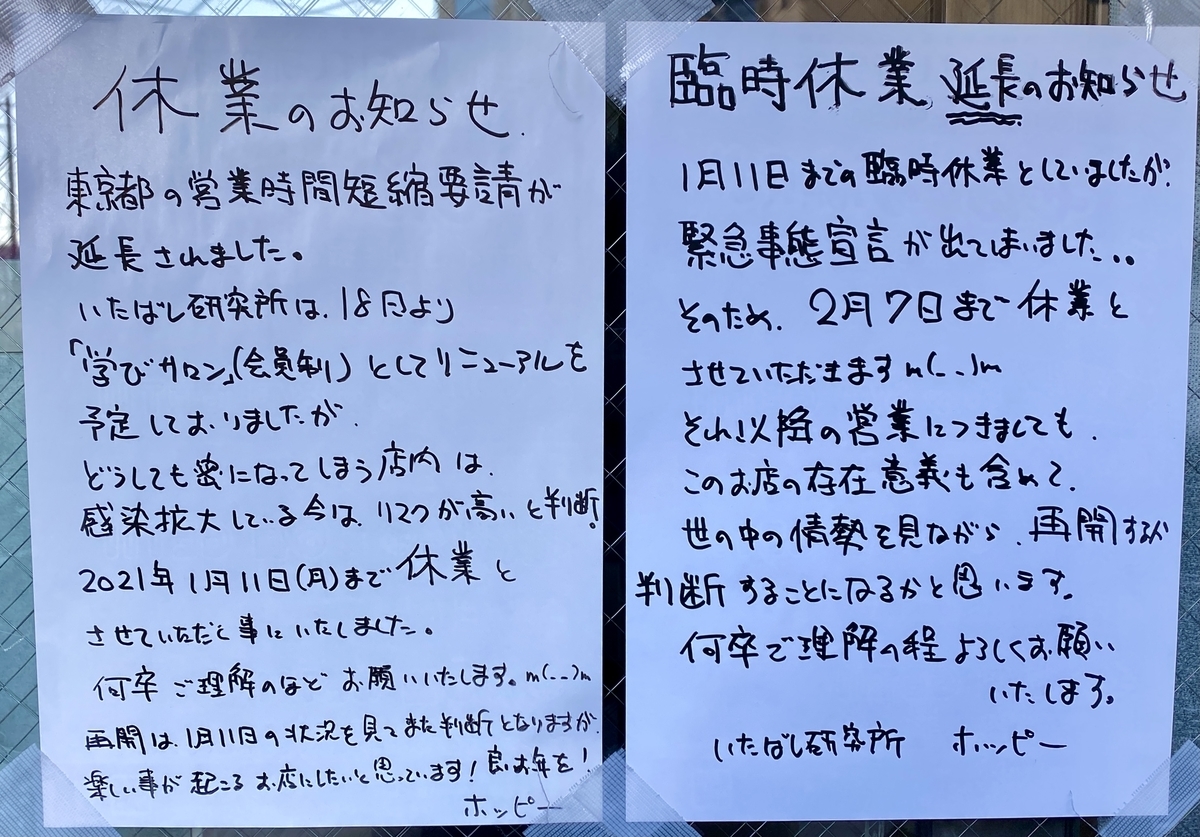 休業のお知らせ.
東京都の営業時間短縮要請が
延長されました。
いたばし研究所は、18日より
「学びサロン」(会員制)としてリニューアルを
予定しておりましたが、
どうしても密になってしまう店内は、
感染拡大している今は、リスクが高いと判断!
2021年1月11日(月)まで休業と
させていただく事にいたしました。
何卒ご理解のほどお願いいたします。m(_ _)m
再開は、1月11日の状況を見てまた判断となりますが、
楽しい事が起こるお店にしたいと思っています!良いお年を!
ホッピー
臨時休業延長のお知らせ
1月11日までの臨時休業としていましたが、
緊急事態宣言が出てしまいました...
そのため、2月7日まで休業と
させていただきますm(_ _)m
それ以降の営業につきましても、
このお店の存在意義も含めて、
世の中の情勢を見ながら、再開するか
判断することになるかと思います。
何卒ご理解の程よろしくお願い
いたします。
いたばし研究所 ホッピー